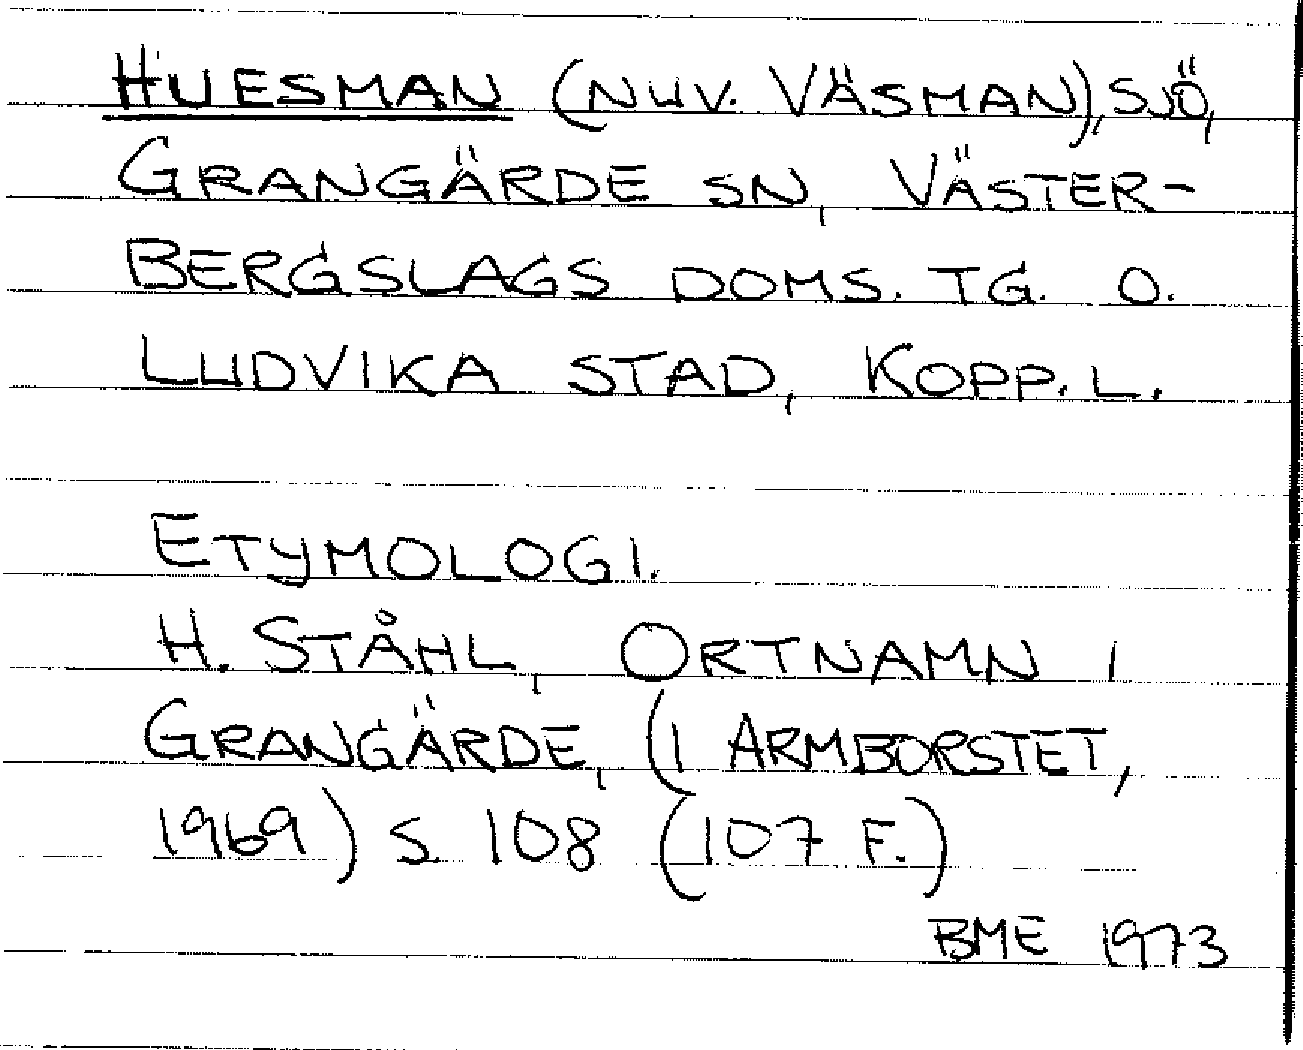 HUESMAN (NUV. VÄSMAN), SJÖ,
GRANGÄRDE SN, VÄSTER-
BERGSLAGS DOMS. TG. O.
LUDVIKA STAD, KOPP. L.
ETYMOLOGI.
H. STÅHL, ORTNAMN I
GRANGÄRDE, (I ARMBORSTET,
1969) S 108 (107 F.)
BME 1973